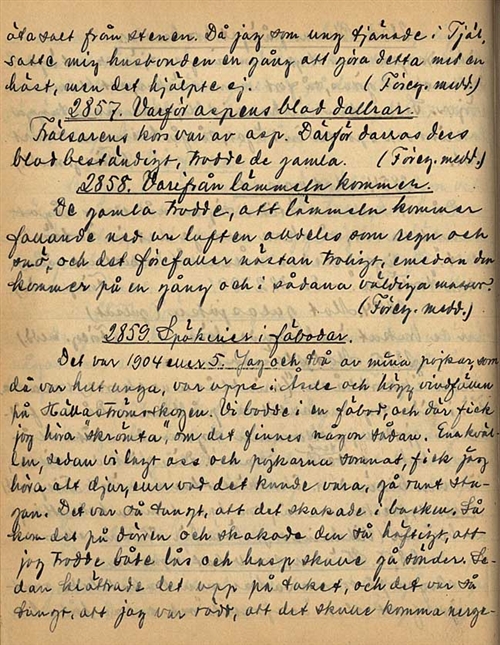 äta salt från stenen. Då jag som ung tjänade i Tjäl,
satte mig husbonden en gång att göra detta med en
häst, men det hjälpte ej. (Föreg. medd.)
2857. Varför aspens blad dallrar.
Frälsarens kors var av asp. Därför darras dess
blad beständigt, trodde de gamla. (Föreg. medd.)
2858. Varifrån lämmeln kommer.
De gamla trodde, att lämmeln kommer
fallande ned ur luften alldeles som regn och
snö, och det förefaller nästan troligt, emedan den
kommer på en gång och i sådana väldiga massor.
(Föreg. medd.)
2859. Spökerier i fäbodar.
Det var 1904 eller 5. Jag och två av mina pojkar, som
då var helt unga, var uppe i och högg vindfällen
på Hällaströmsskogen. Vi bodde i en fäbod, och där fick
jag höra "skrömta", om det finnes någon sådan. En kväl-
len, sedan vi lagt oss och pojkarna somnat, fick jag
höra ett djur, eller vad det kunde vara, gå runt stu-
gan. Det var så tungt, att det skakade i backen. Så
kom det på dörren och skakade den så häftigt, att
jag trodde både lås och hasp skulle gå sönder. Se-
dan klättrade det upp på taket, och det var så
tungt, att jag var rädd, att det skulle komma nerge-